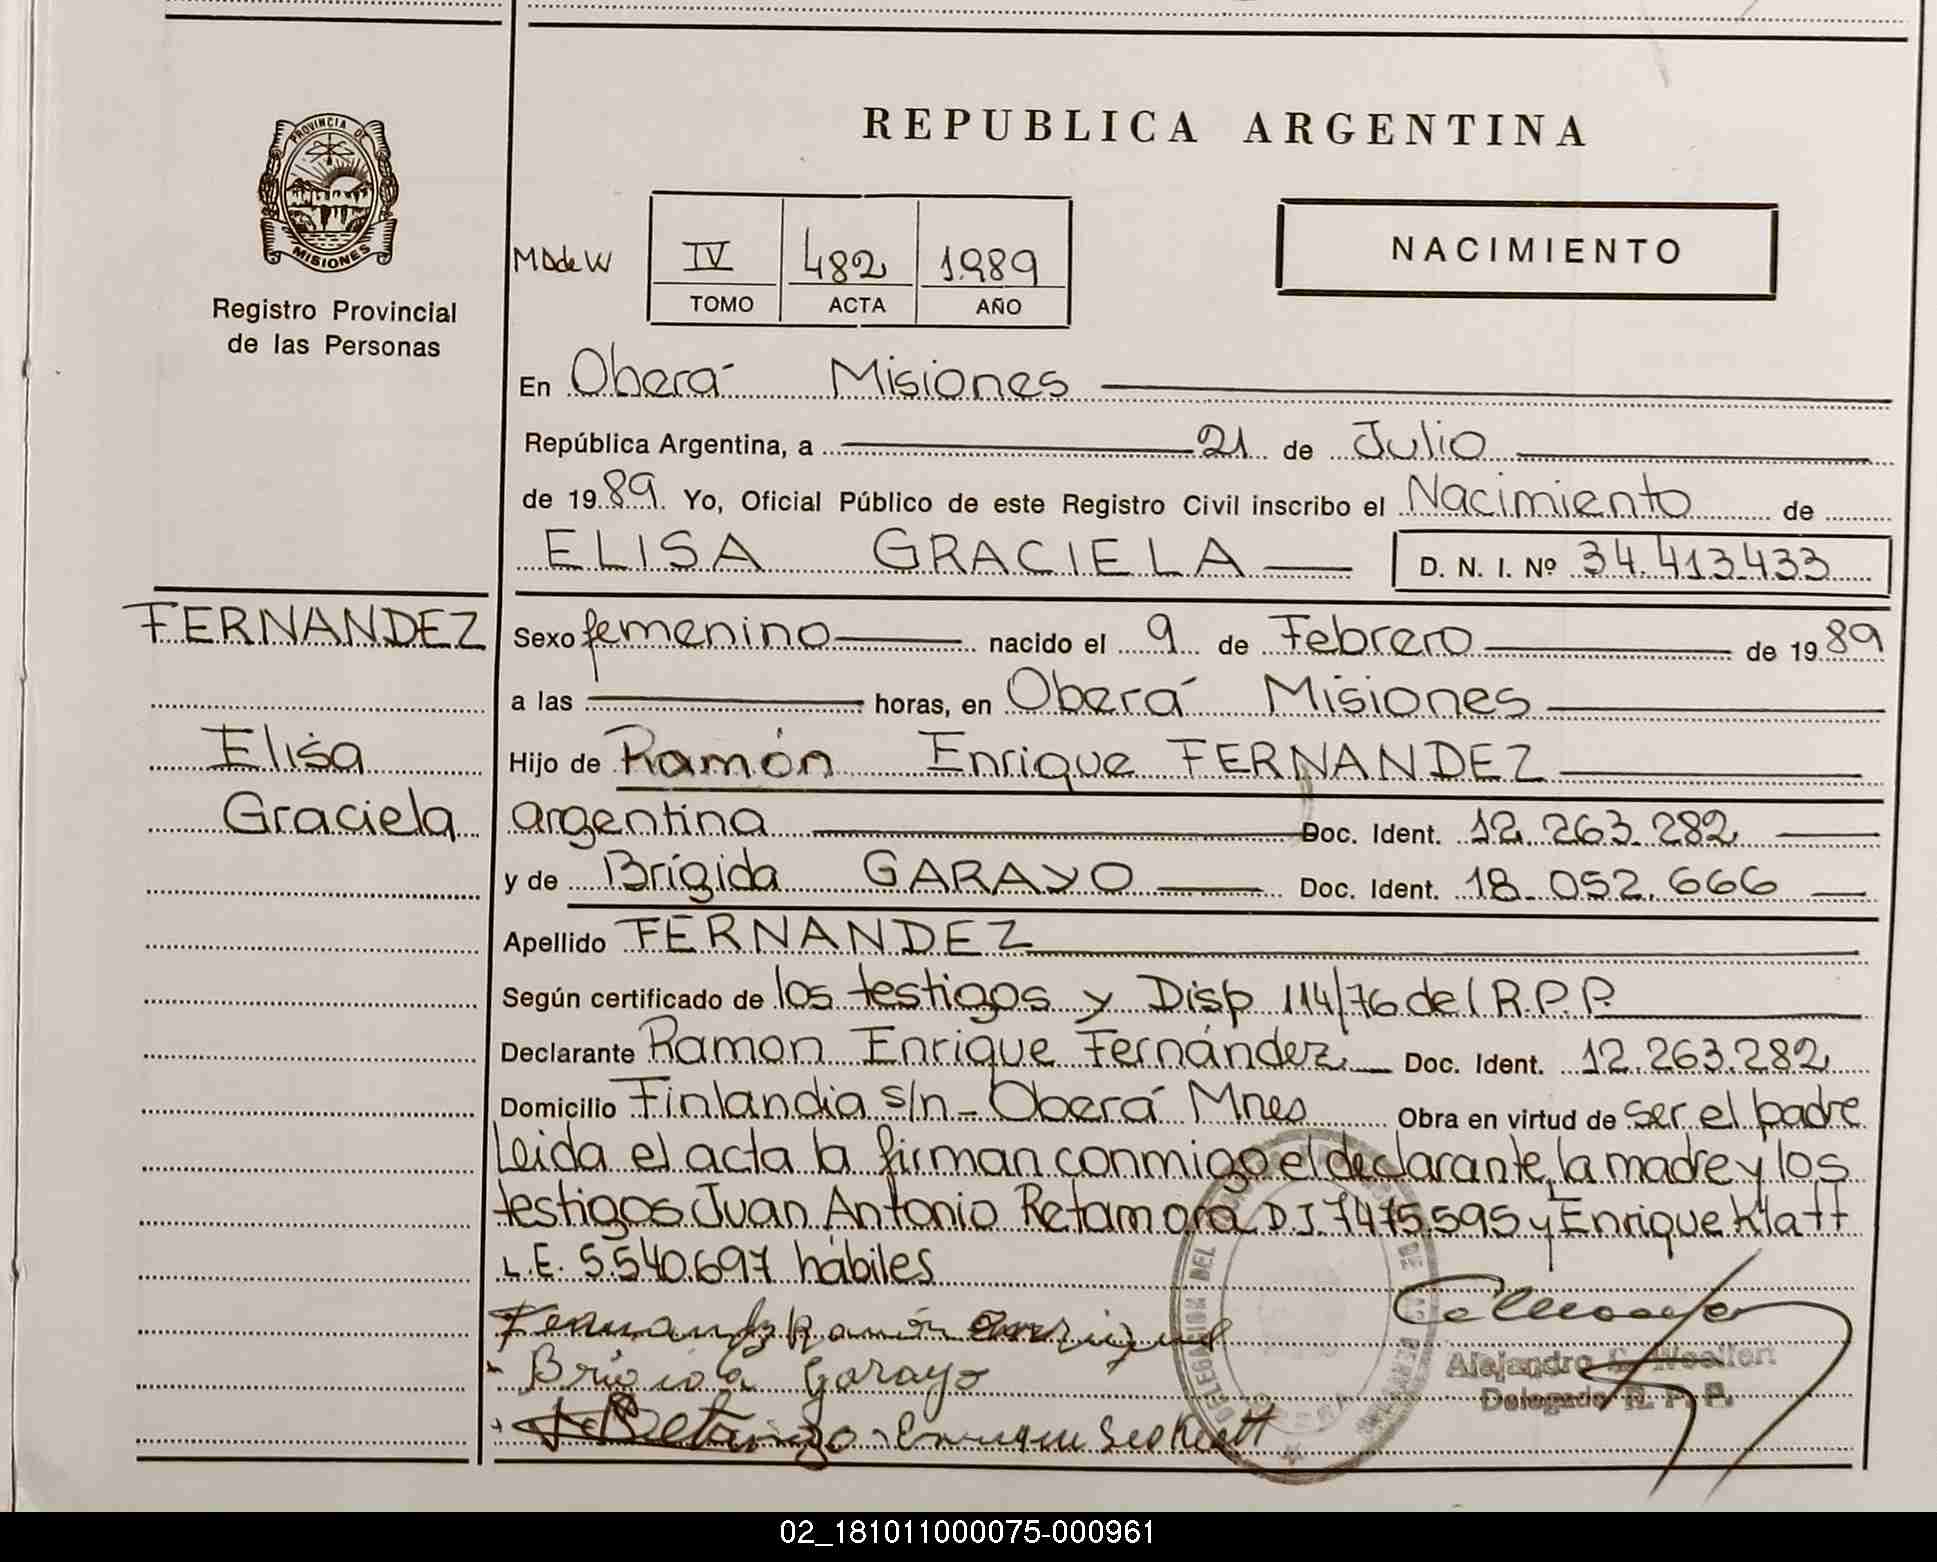 REPUBLICA ARGENTINA
PROVINCIA DE
MISIONES
Registro Provincial
de las Personas
MDdeW
IV 482 1989
TOMO ACTA AÑO
NACIMIENTO
En Oberá Misiones
República Argentina, a 21 de Julio
de 1989. Yo, Oficial Público de este Registro Civil inscribo el Nacimiento de
ELISA GRACIELA D. N. I. Nº 34.413.433
FERNANDEZ
Elisa
Graciela
Sexo femenino nacido el 9 de Febrero de 1989
a las horas, en Oberá Misiones
Hijo de Ramón Enrique FERNANDEZ
argentina Doc. Ident. 12.263.282
y de Brígida GARAYO Doc. Ident. 18.052.666
Apellido FERNANDEZ
Según certificado de los testigos y Disp 114/76 del R.P.P.
Declarante Ramon Enrique Fernández Doc. Ident. 12.263.282
Domicilio Finlandia s/n - Oberá Mnes Obra en virtud de ser el padre
Leida el acta la firman conmigo el declarante, la madre y los
testigos Juan Antonio Retamora D.I. 7475.595 y Enrique Klatt
L.E. 5.540.697 hábiles
Fernandez Ramón Enrique
Brigida Garayo
Enrique Klatt
Alejandro Woollen
Delegado R. P. P.
DELEGACION DEL
02_181011000075-000961